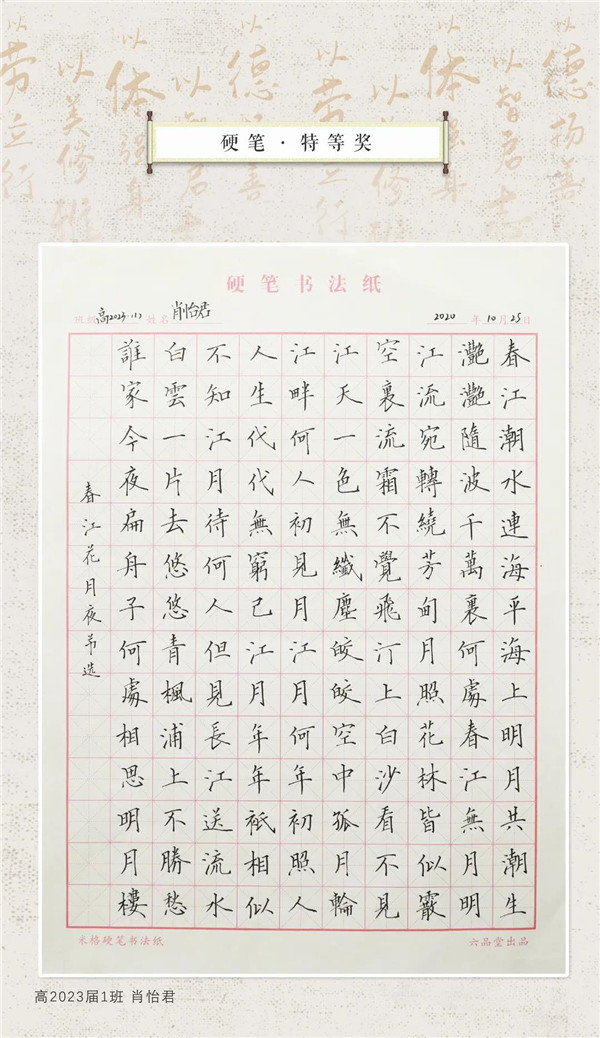 以劳立行
以美修雅
以体强身
以德扬善
以智启志
硬笔·特等奖
硬笔书法纸
班级 高2023.(1) 姓名 肖怡君 2020年10月25日
春江潮水連海平海上明月共潮生
灧灧隨波千萬裏何處春江無月明
江流宛轉繞芳甸月照花林皆似霰
空裏流霜不覺飛汀上白沙看不見
江天一色無纖塵皎皎空中孤月輪
江畔何人初見月江月何年初照人
人生代代無窮己江月年年祇相似
不知江月待何人但見長江送流水
白雲一片去悠悠青楓浦上不勝愁
誰家今夜扁舟子何處相思明月樓
春江花月夜节选
米格硬笔书法纸
六品堂出品
高2023届1班 肖怡君